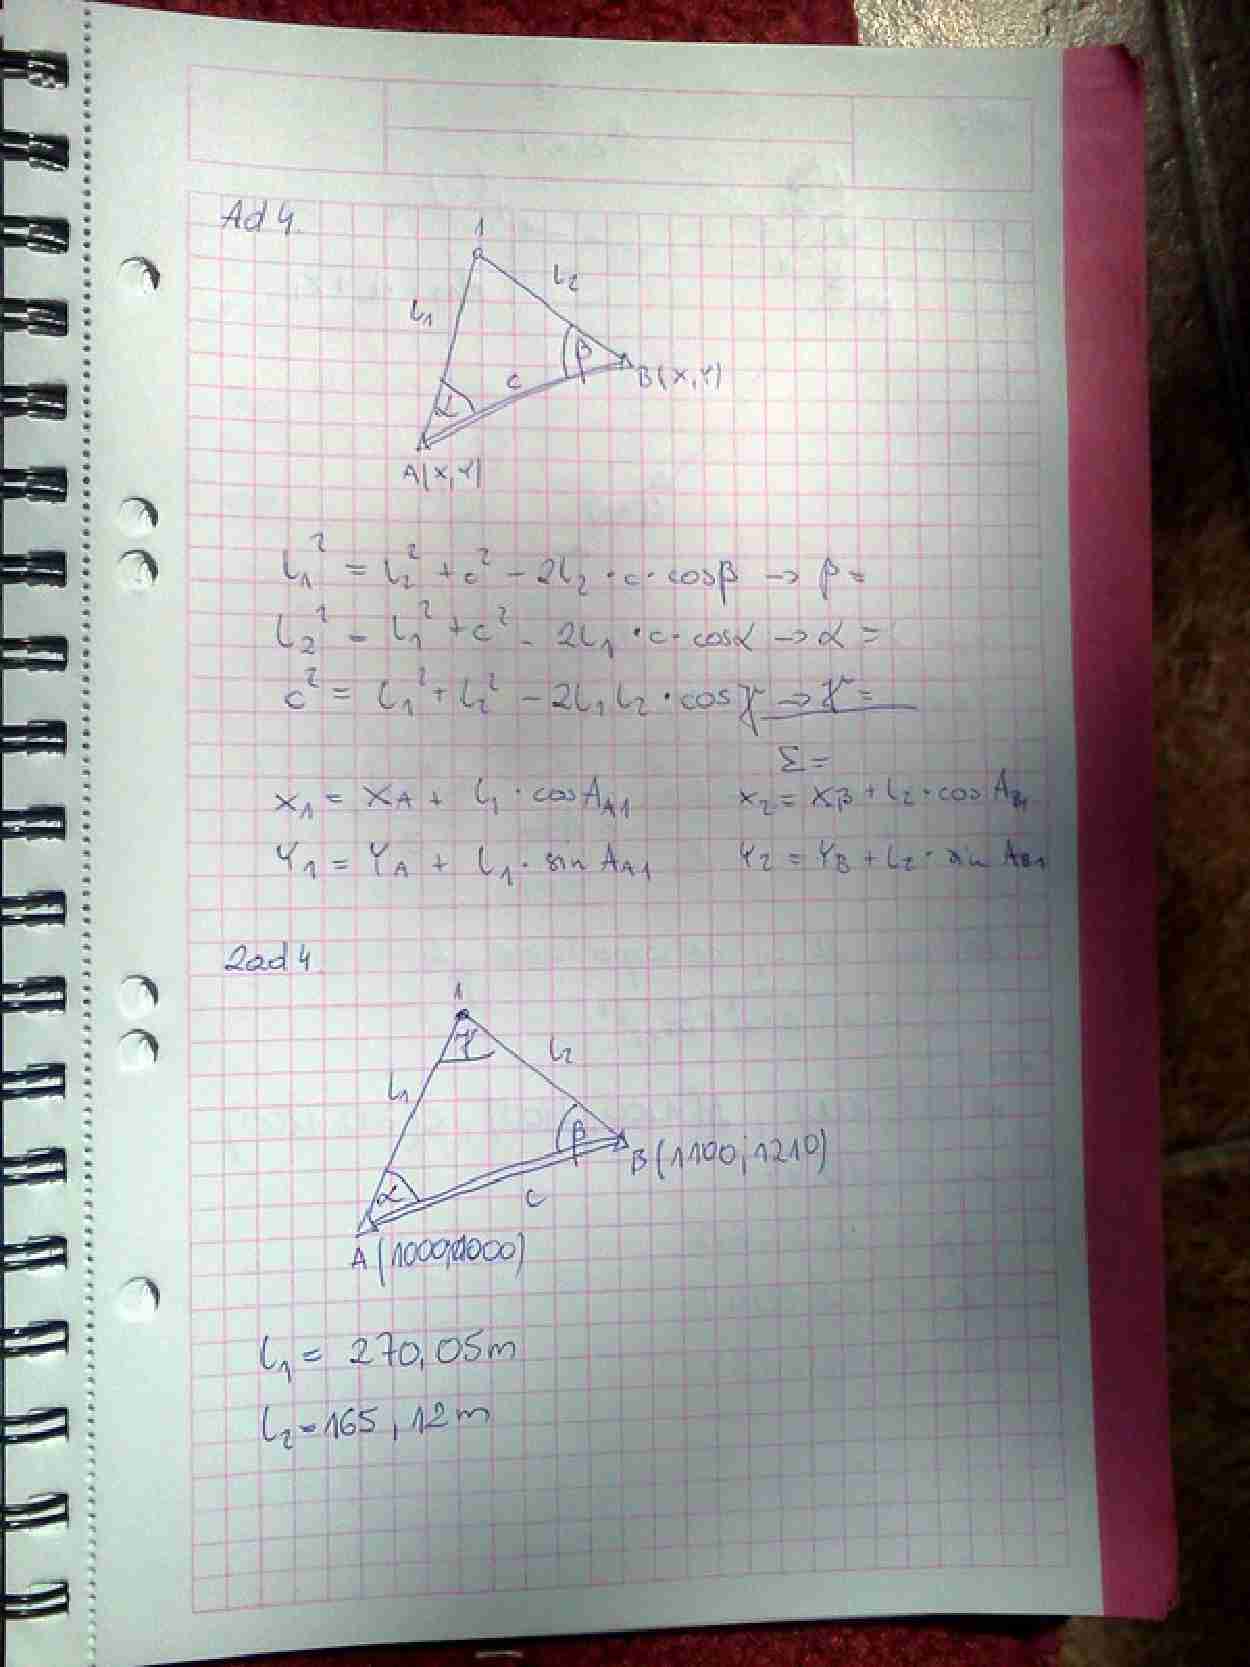 Ad 4.
1
l₁ l₂
β
c
α
B(X,Y)
A(X,Y)
l₁² = l₂² + c² - 2l₂ · c · cosβ → β =
l₂² = l₁² + c² - 2l₁ · c · cosα → α =
c² = l₁² + l₂² - 2l₁l₂ · cosγ → γ =
Σ =
X₁ = X_A + l₁ · cos A_A1 X₂ = X_B + l₂ · cos A_B1
Y₁ = Y_A + l₁ · sin A_A1 Y₂ = Y_B + l₂ · sin A_B1
2ad 4
1
γ
l₁ l₂
β
α
c
B(1100;1210)
A(1000;1000)
l₁ = 270,05m
l₂ = 165,12m